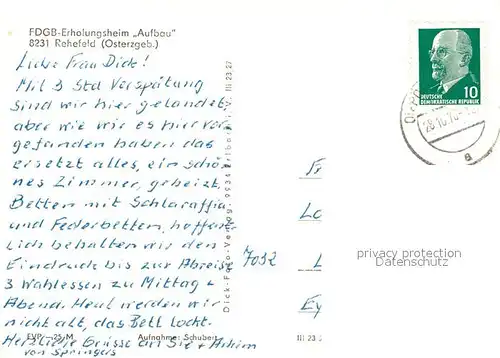 FDGB-Erholungsheim „Aufbau"
8231 Rehefeld (Osterzgeb.)
Liebe Frau Dick!
Mit 3 Std Verspätung
sind wir hier gelandet,
aber wie wir es hier vor
gefunden haben das
ersetzt alles, ein schö
nes Zimmer, geheizt.
Betten mit Schlaraffia
und Federbetten, hoffent
lich behalten wir den
Eindruck bis zur Abreise
3 Wahlessen zu Mittag +
Abend. Heut werden wir
nicht alt, das Bett lockt.
Herzliche Grüsse an Sie + Achim
von Springers
EVP -,25 M
Aufnahme: Schubert
III 23 2
Dick-Foto-Verlag, 9934 Erlbach i. V. III 23 27
10
DEUTSCHE
DEMOKRATISCHE REPUBLIK
28.10.70
a
Fr
Lo
7032
L
Ey
privacy protection
Datenschutz